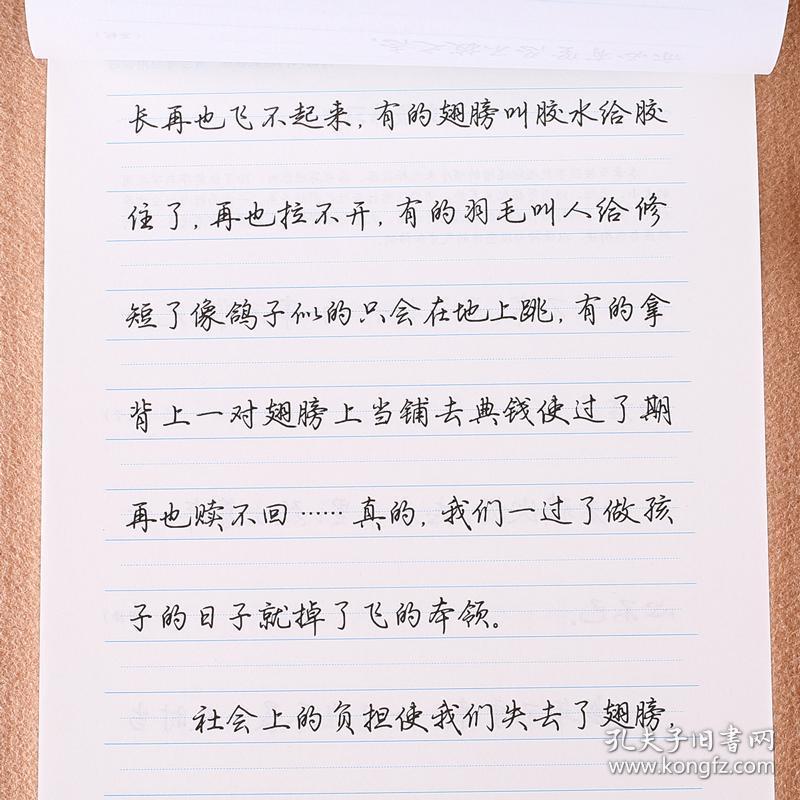 长再也飞不起来,有的翅膀叫胶水给胶
住了,再也拉不开,有的羽毛叫人给修
短了像鸽子似的只会在地上跳,有的拿
背上一对翅膀上当铺去典钱使过了期
再也赎不回……真的,我们一过了做孩
子的日子就掉了飞的本领。
社会上的负担使我们失去了翅膀,
孔夫子旧书网
www.kongfz.com